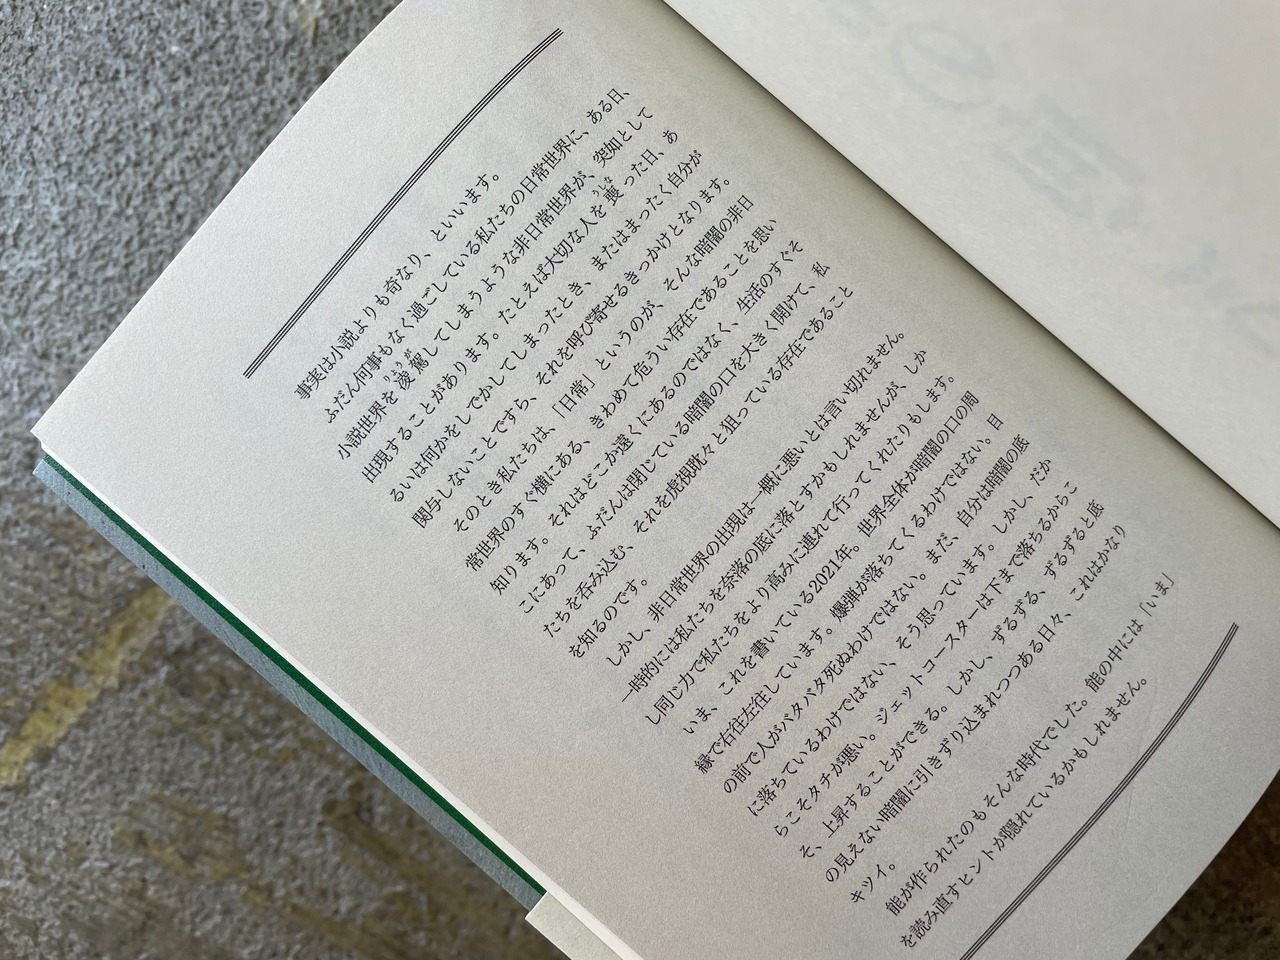 事実は小説よりも奇なり、といいます。
ふだん何事もなく過ごしている私たちの日常世界に、ある日、
小説世界を凌駕してしまうような非日常世界が、突如として
出現することがあります。たとえば大切な人を喪った日、あ
るいは何かをしでかしてしまったとき、またはまったく自分が
関与しないことですら、それを呼び寄せるきっかけとなります。
そのとき私たちは、「日常」というのが、そんな暗闇の非日
常世界のすぐ横にある、きわめて危うい存在であることを思い
知ります。それはどこか遠くにあるのではなく、生活のすぐそ
こにあって、ふだんは閉じている暗闇の口を大きく開けて、私
たちを呑み込む、それを虎視眈々と狙っている存在であること
を知るのです。
しかし、非日常世界の出現は一概に悪いとは言い切れません。
一時的には私たちを奈落の底に落とすかもしれませんが、しか
し同じ力で私たちをより高みに連れて行ってくれたりもします。
いま、これを書いている2021年。世界全体が暗闇の口の周
縁で右往左往しています。爆弾が落ちてくるわけではない。目
の前で人がバタバタ死ぬわけではない。まだ、自分は暗闇の底
に落ちているわけではない、そう思っています。しかし、だか
らこそタチが悪い。ジェットコースターは下まで落ちるからこ
そ、上昇することができる。しかし、ずるずる、ずるずると底
の見えない暗闇に引きずり込まれつつある日々、これはかなり
キツイ。
能が作られたのもそんな時代でした。能の中には「いま」
を読み直すヒントが隠れているかもしれません。